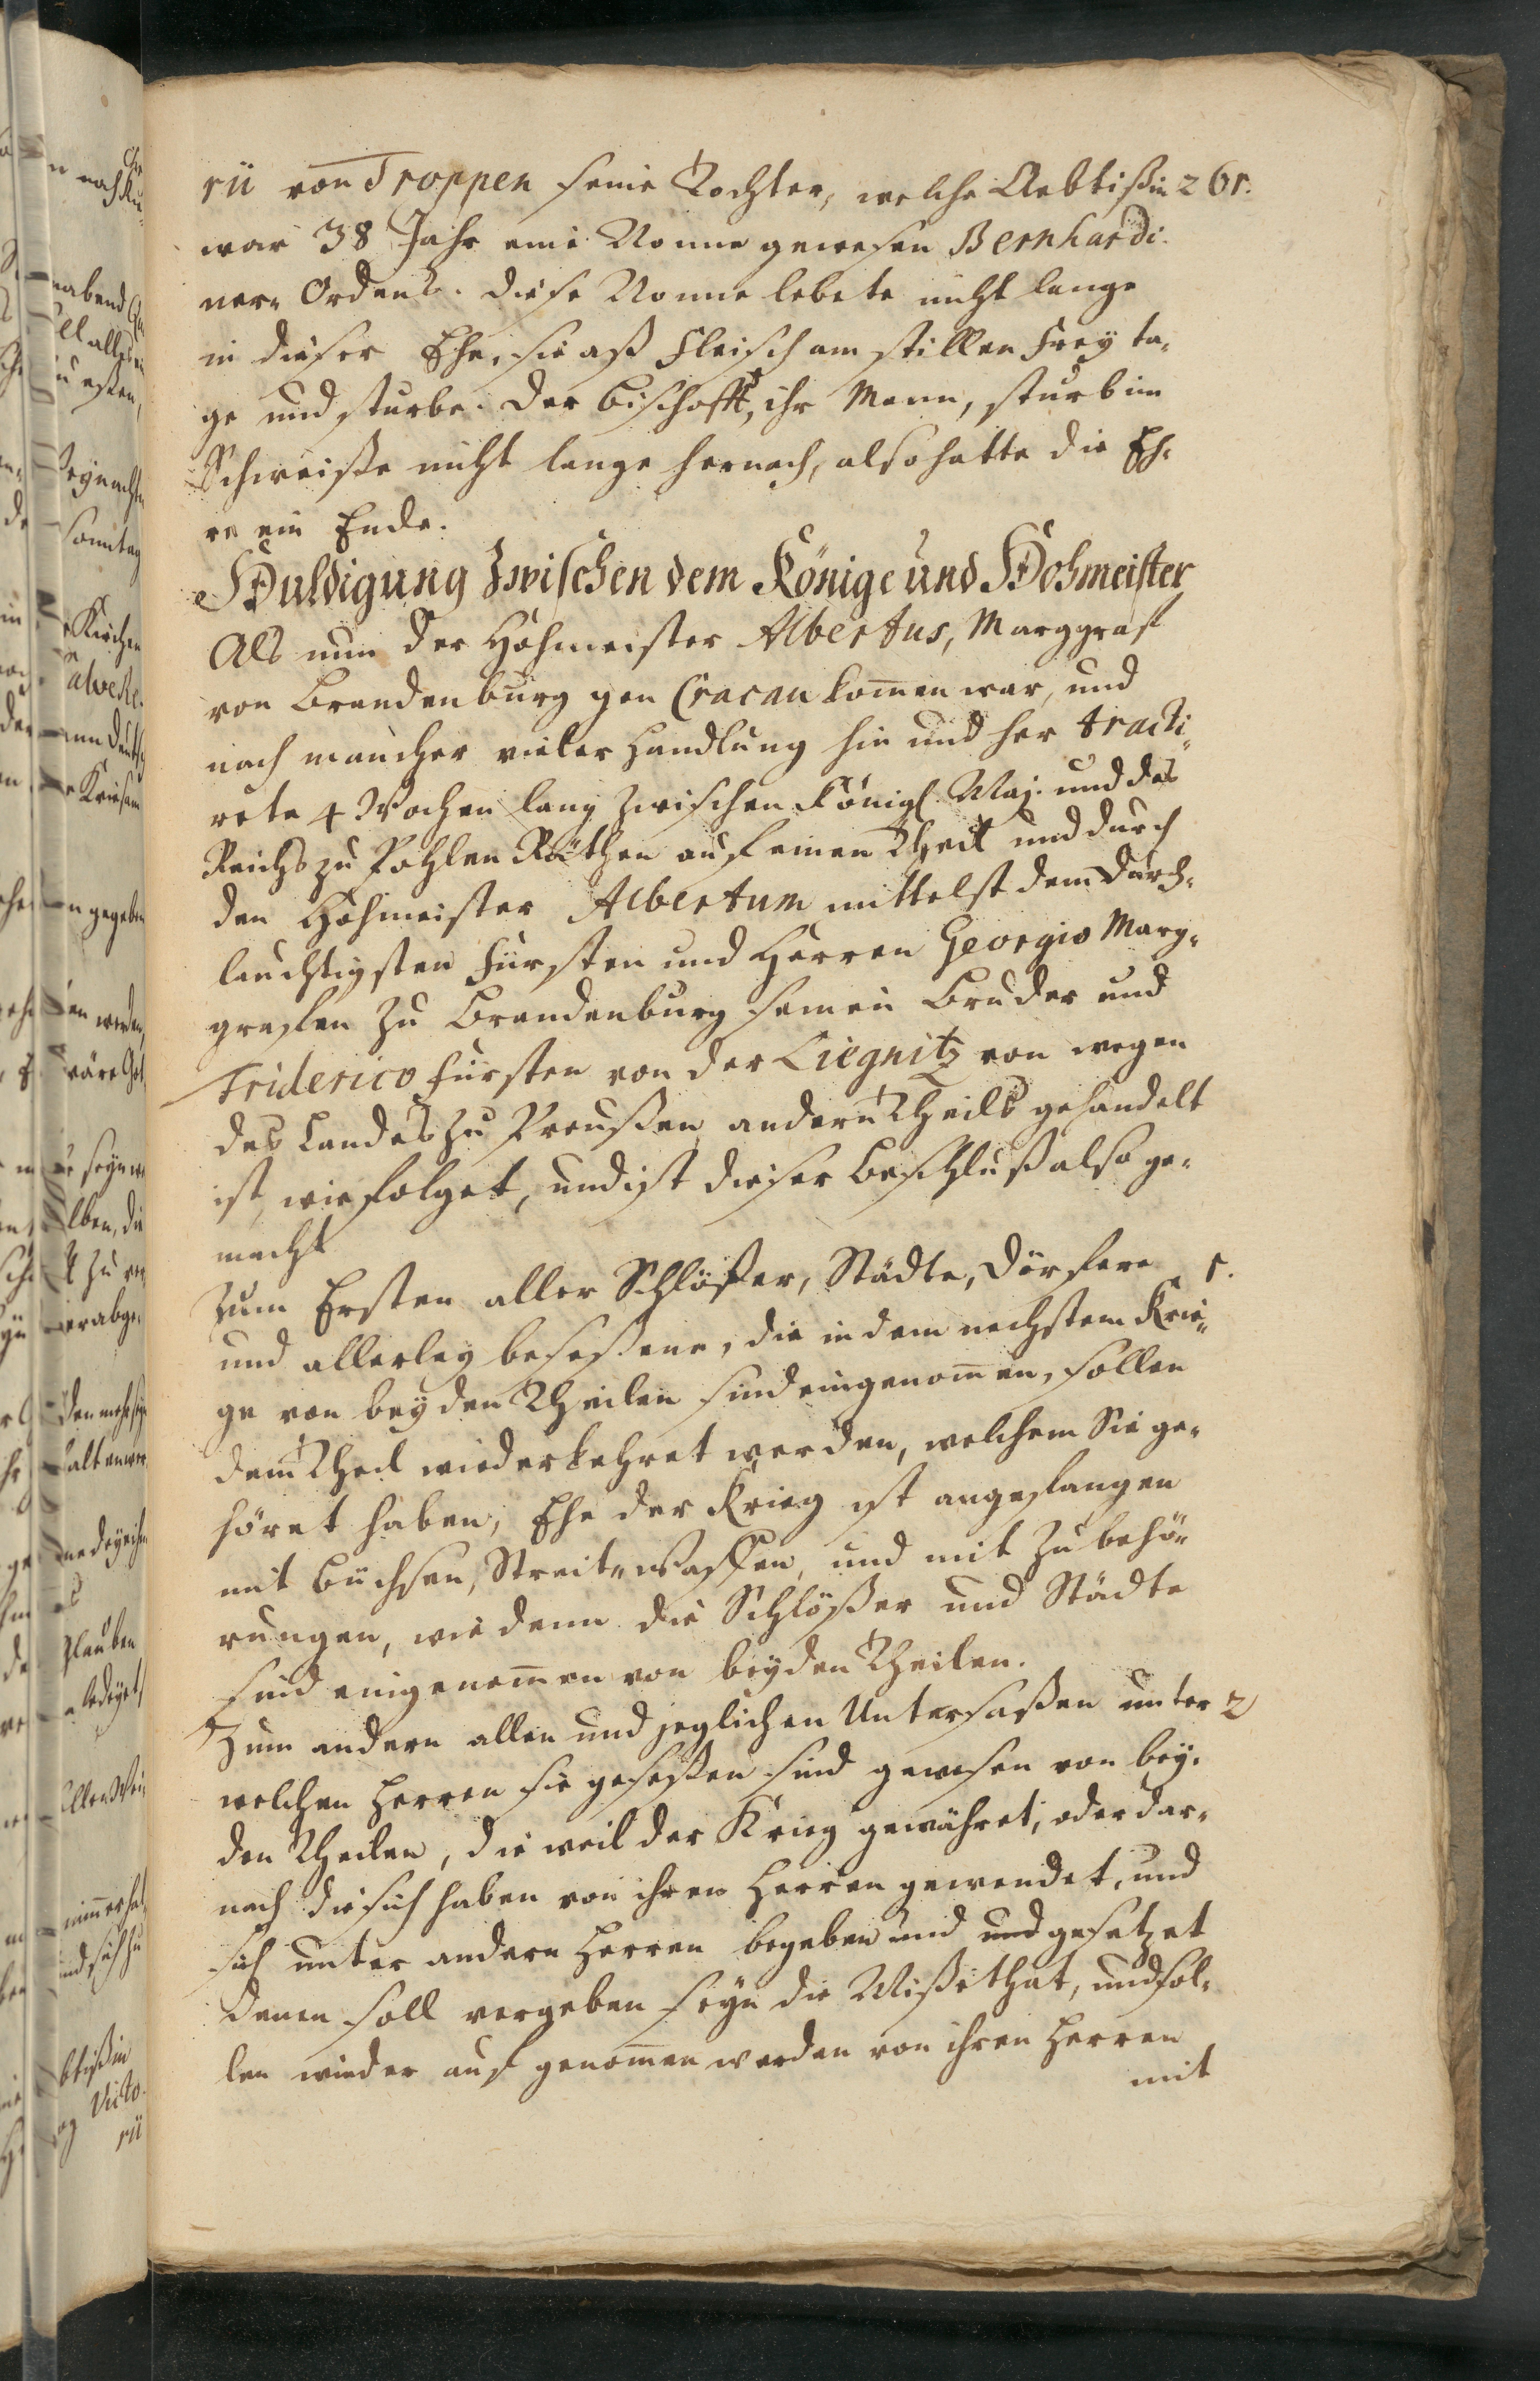 rii von Troppen seine Tochter, welche Aebtißin 261.
war 38 Jahr eine Nonne gewesen Bernhardi-
ner-Ordens. Diese Nonne lebete nicht lange
in dieser Ehe, sie aß Fleisch am stillen Frey ta-
ge und sturbe. Der Bischofft, ihr Mann, sturb im
Schweiße nicht lange hernach, also hatte die Eh-
re ein Ende.
Huldigung zwischen dem Könige und Hohmeister
Als nun der Hohmeister Albertus, Marggraf
von Brandenburg gen Cracau kom̄en war, und
nach mancher vieler Handlung hin und her tracti-
rete 4 Wochen lang zwischen Königl. Maj. und des
Reichs zu Pohlen Räthen auf einen Theil und durch
den Hohmeister Albertum mittelst dem Durch-
lauchtigsten Fürsten und Herren Georgio Marg-
graffen zu Brandenburg seinen Bruder und
Friderico Fürsten von der Liegnitz von wegen
des Landes zu Preußen, andern Theils gehandelt
ist, wie folget, und ist dieser Beschluß also ge-
macht
Zum Ersten aller Schlößer, Städte, Dörfere 1.
und allerley beseßene, die in dem nechstem Krie-
ge von beyden Theilen sind eingenom̄en, sollen
dem Theil wiederkehret werden, welchem Sie ge-
höret haben, Ehe der Krieg ist angefangen
mit Büchsen, Streit-Waffen, und mit Zubehö-
rungen, wie denn die Schlößer und Städte
sind eingenom̄en von beyden Theilen.
Zum andern allen und jeglichen Untersaßen unter 2
welchen Herren sie geseßen sind gewesen von bey-
den Theilen, die weil der Krieg gewähret, oder dar-
nach die sich haben von ihren Herren gewendet, und
sich unter andern Herren begeben und und gesetzet
Denen soll vergeben seyn die Mißethat, und sol-
len wieder auf genom̄en werden von ihren Herren
mit